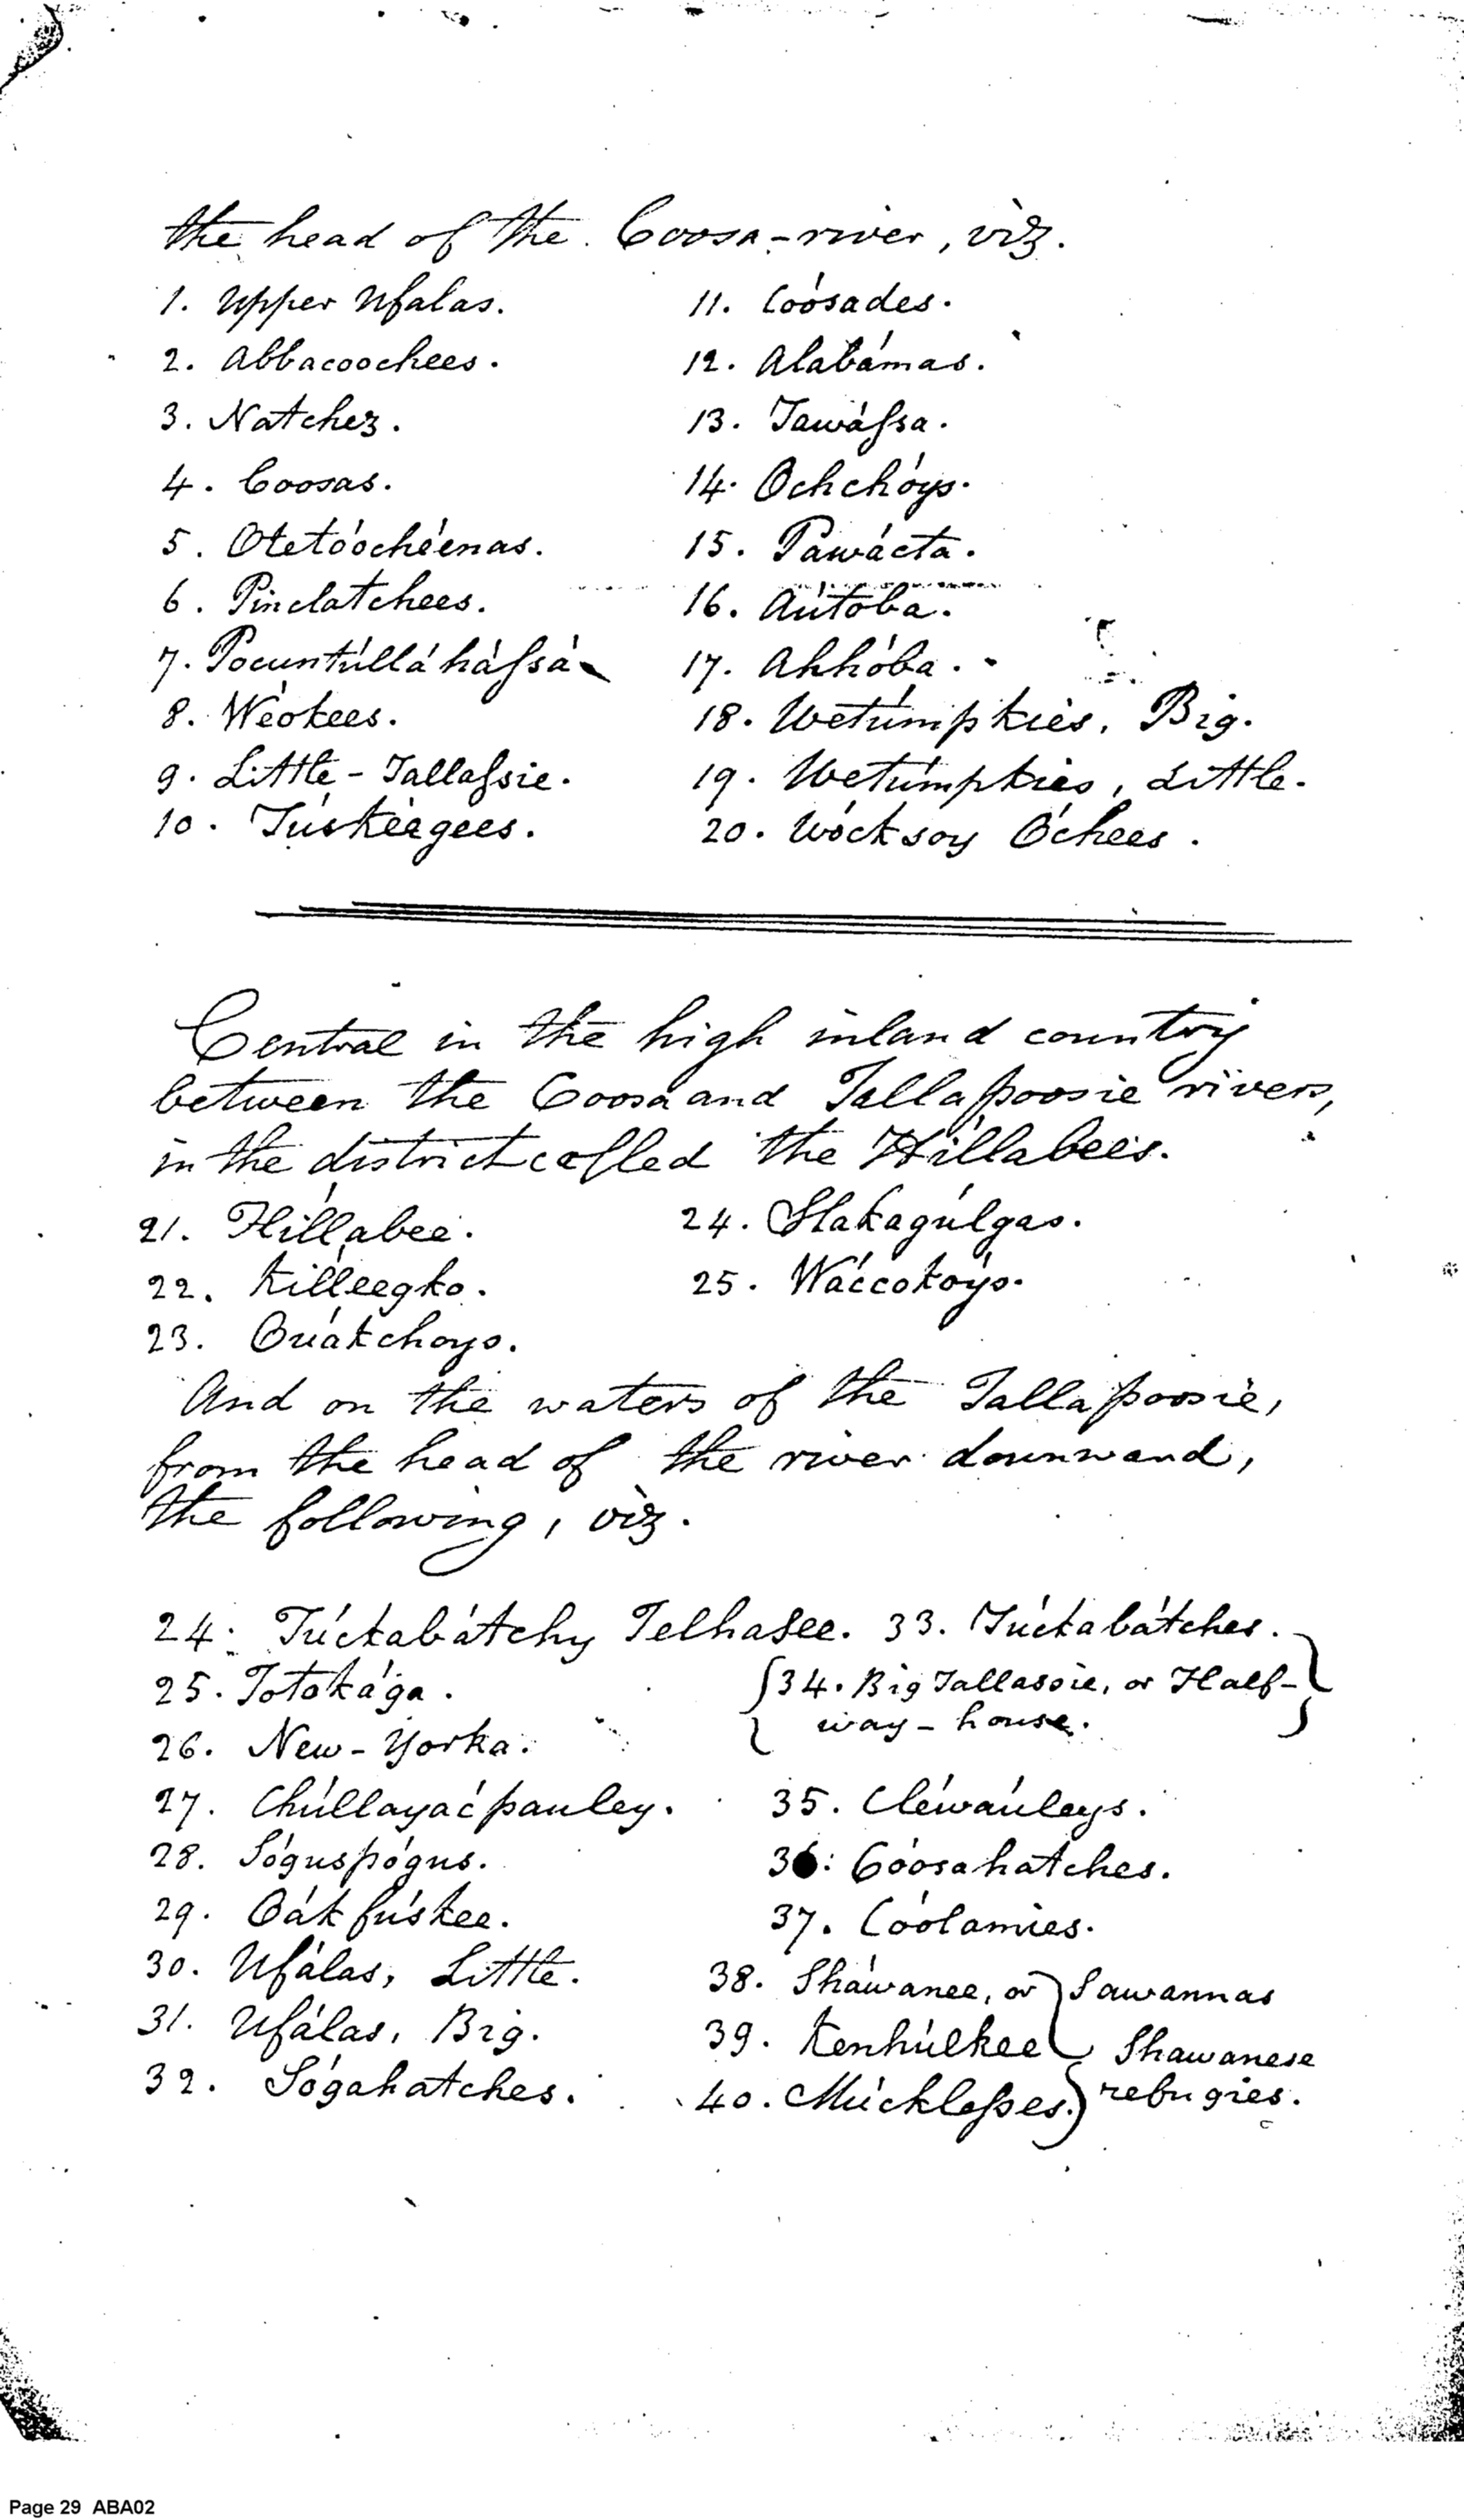 the head of the Coosa-river, viz.
1. Upper Ufalas.
2. Abbacoochees.
3. Natchez.
4. Coosas.
5. Oteto'oche'enas.
6. Pinclatchees.
7. Pocuntúllá háſsá
8. Wéokees.
9. Little-Tallaſsie.
10. Túskéegees.
11. Coósades.
12. Alabámas.
13. Tawáſsa.
14. Ochchóys.
15. Pawácta.
16. Aútoba.
17. Ahhóba.
18. Wetúmpkies, Big.
19. Wetúmpkies, Little.
20. Wócksoy Óchees.
Central in the high inland country
between the Coosa and Tallapoosie rivers,
in the district called the Hillabees.
21. Hillabee.
22. Killeegko.
23. Ouákchoys.
24. Slakagúlgas.
25. Wáccokoys.
And on the waters of the Tallapoosie,
from the head of the river downward,
the following, viz.
24. Túckabátchy Telhasee.
25. Totokága.
26. New-Yorka.
27. Chúllayácpauley.
28. Sóguspógus.
29. Oákfúskee.
30. Ufálas, Little.
31. Ufálas, Big.
32. Sógahatches.
33. Túckabátches.
34. Big Tallassie, or Half-
way-house.
35. Cléwáuleys.
36: Cóosahatches.
37. Cóolamies.
38. Sháwanee, or Sawannas
39. Kenhúlkee Shawanese
40. Múckleſses. refugies.
Page 29 ABA02